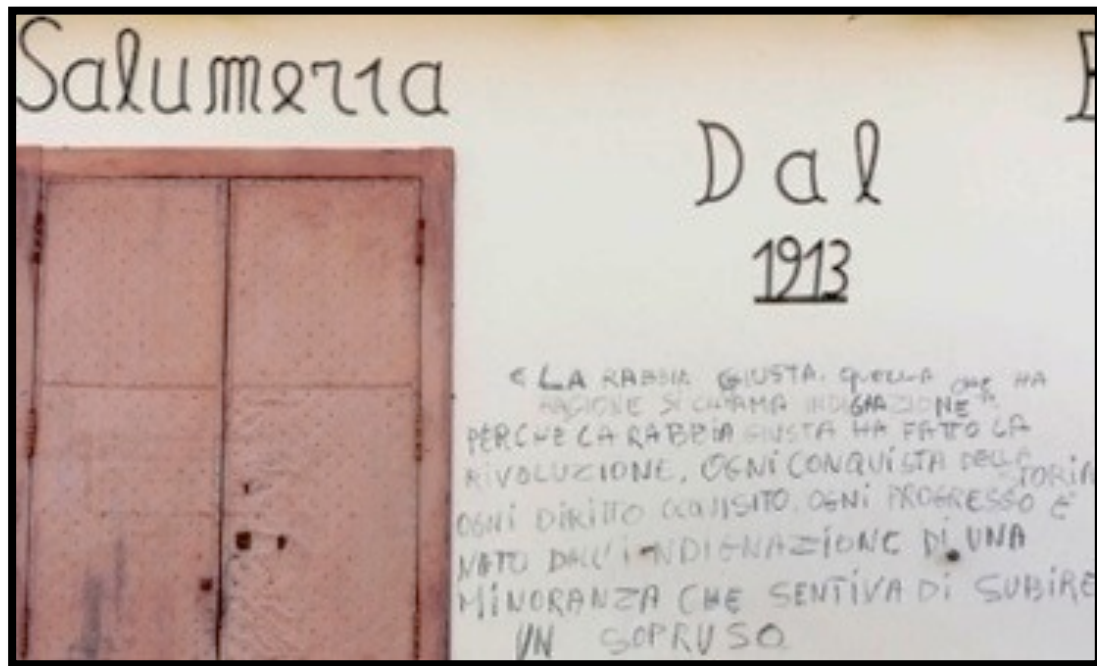 Salumeria
Dal
1913
« LA RABBIA GIUSTA. QUELLA CHE HA
RAGIONE SI CHIAMA INDIGNAZIONE".
PERCHE LA RABBIA GIUSTA HA FATTO LA
RIVOLUZIONE. OGNI CONQUISTA DELLA STORIA
OGNI DIRITTO ACQUISITO. OGNI PROGRESSO E'
NATO DALL'INDIGNAZIONE DI UNA
MINORANZA CHE SENTIVA DI SUBIRE
UN SOPRUSO